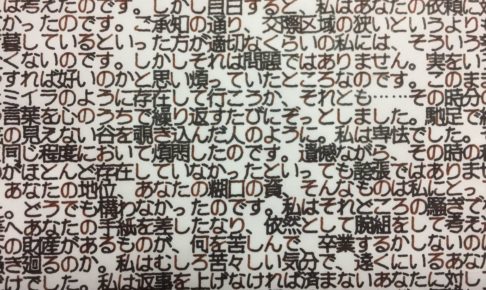 は考えたのです。しかし自白すると、私はあなたの依頼に
かったのです。ご承知の通り、交際区域の狭いというより
暮しているといった方が適切なくらいの私には、そういう
くないのです。しかしそれは問題ではありません。実をい
すれば好いのかと思い煩っていたところなのです。このま
ミイラのように存在して行こうか、それとも……その時分
言葉を心のうちで繰り返すたびにぞっとしました。馳足で
の見えない谷を覗き込んだ人のように。私は卑怯でした。
同じ程度において煩悶したのです。遺憾ながら、その時の
がほとんど存在していなかったといっても誇張ではありま
、あなたの地位、あなたの糊口の資、そんなものは私にとっ
。どうでも構わなかったのです。私はそれどころの騒ぎで
差へあなたの手紙を差したなり、依然として腕組をして考え
の財産があるものが、何を苦しんで、卒業するかしないの
き廻るのか。私はむしろ苦々しい気分で、遠くにいるあな
けでした。私は返事を上げなければ済まないあなたに対し